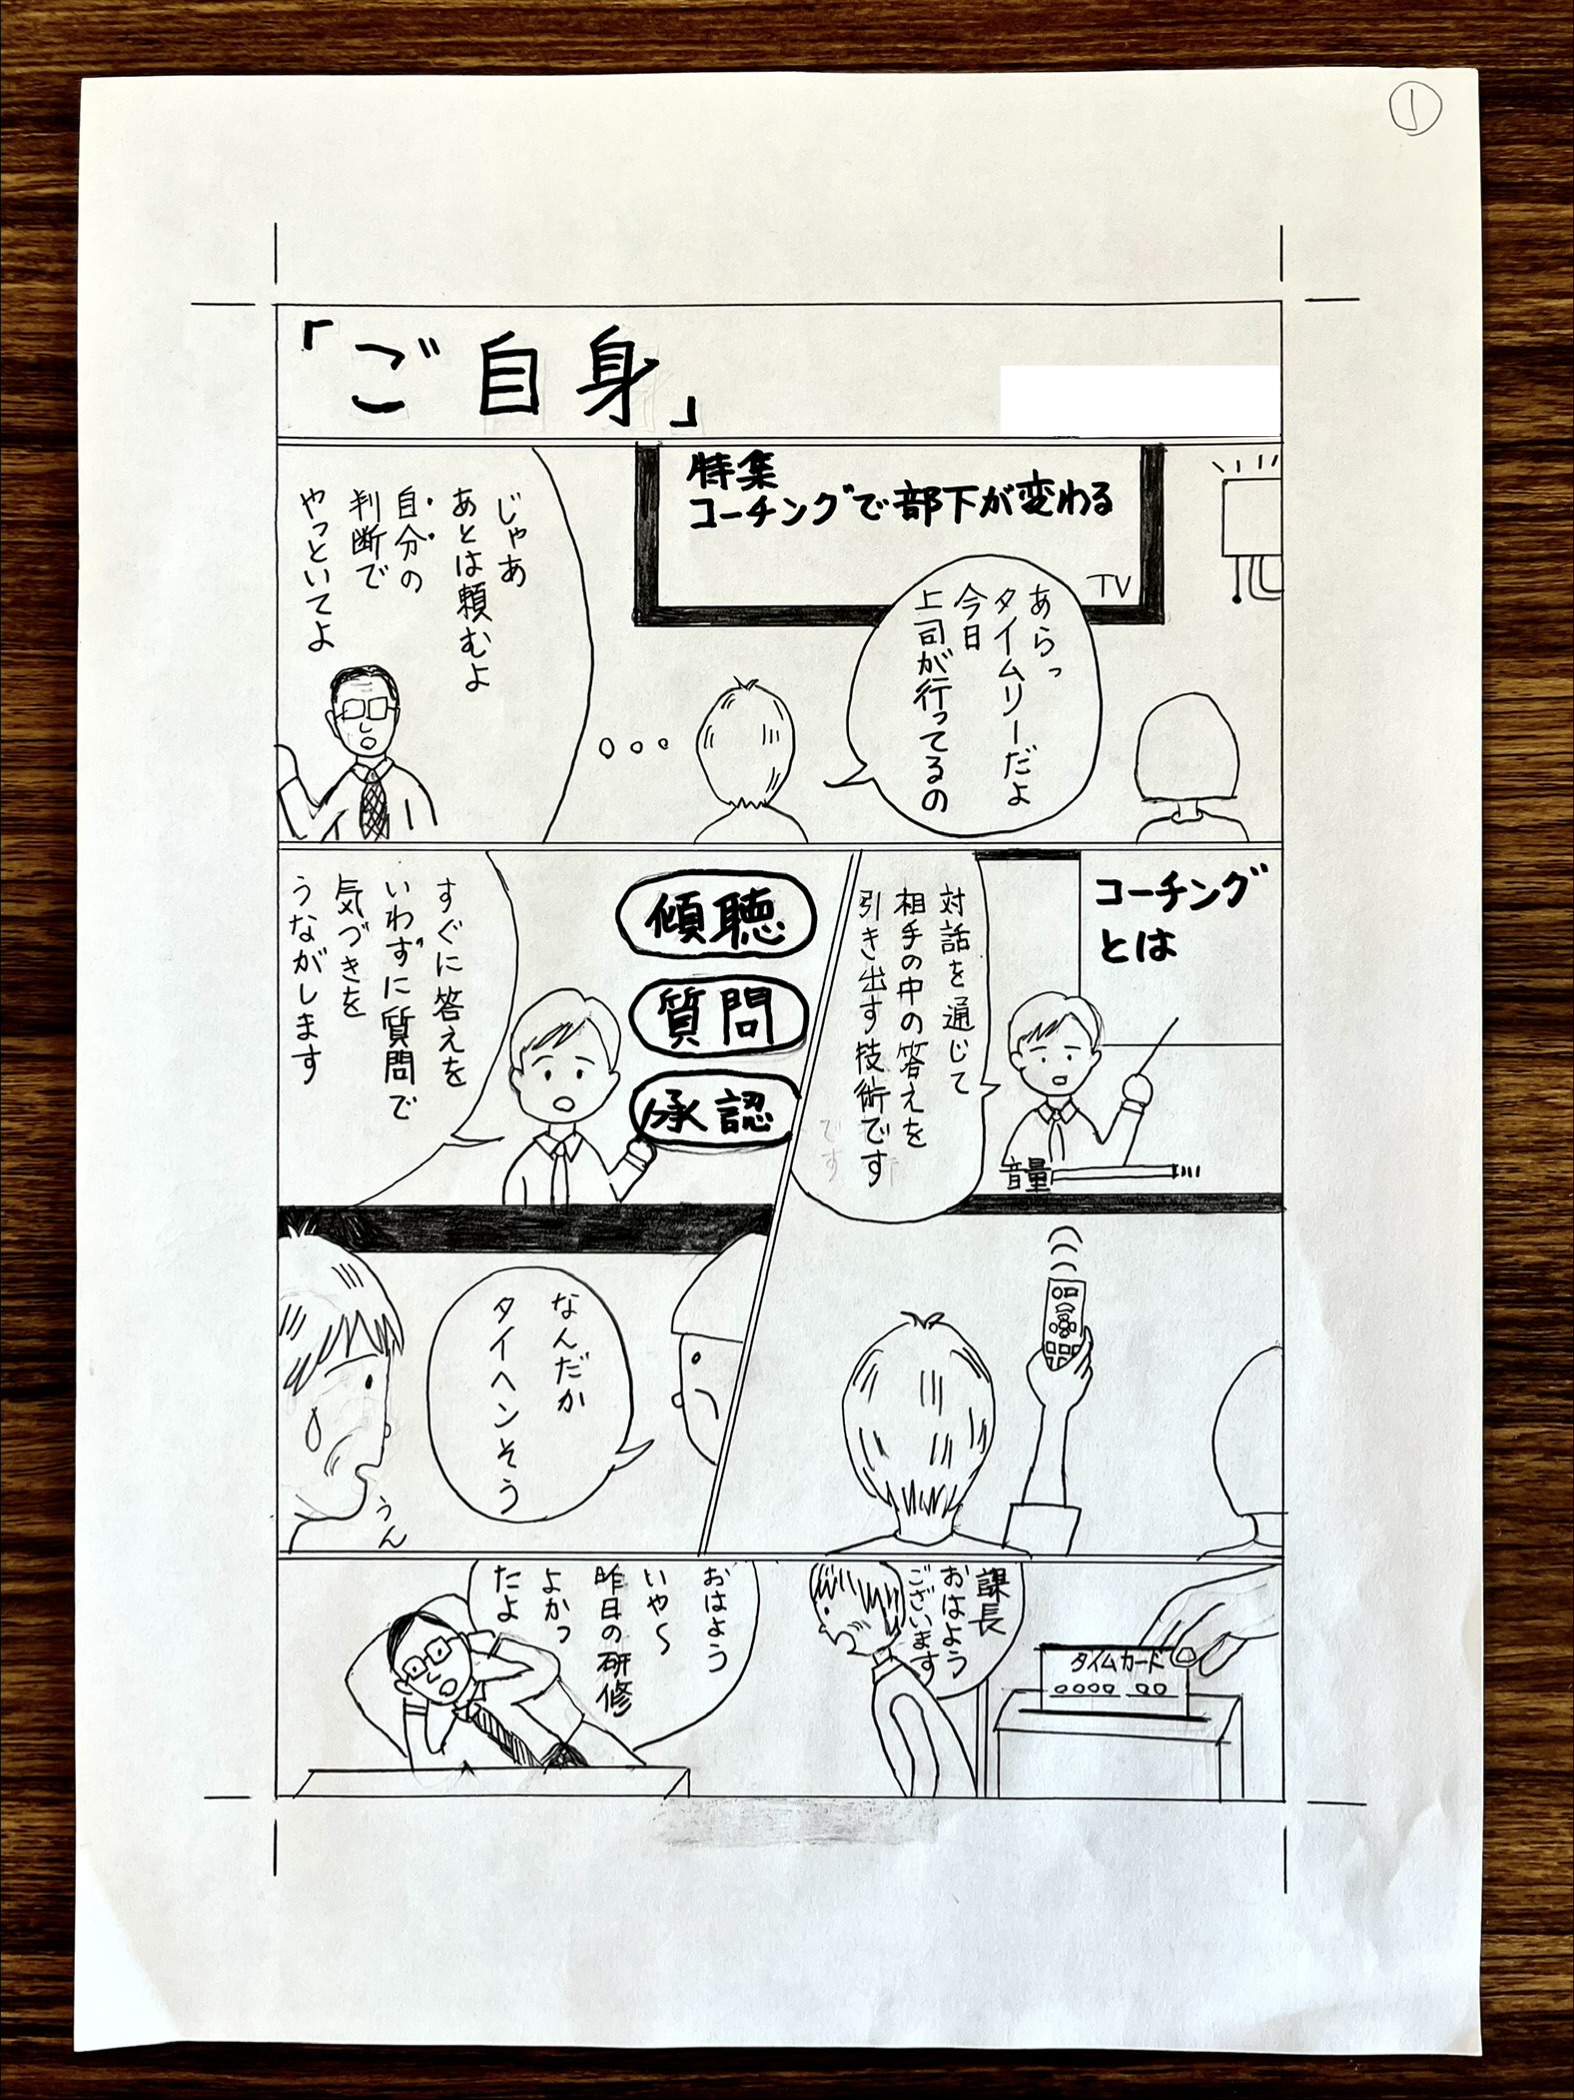 ①
「ご自身」
特集
コーチングで部下が変わる
TV
あらっ
タイムリーだよ
今日
上司が行ってるの
じゃあ
あとは頼むよ
自分の
判断で
やっといてよ
コーチング
とは
対話を通じて
相手の中の答えを
引き出す技術です
音量
傾聴
質問
承認
すぐに答えを
いわずに質問で
気づきを
うながします
なんだか
タイヘンそう
うん
タイムカード
課長
おはよう
ございます
おはよう
いや〜
昨日の研修
よかっ
たよ